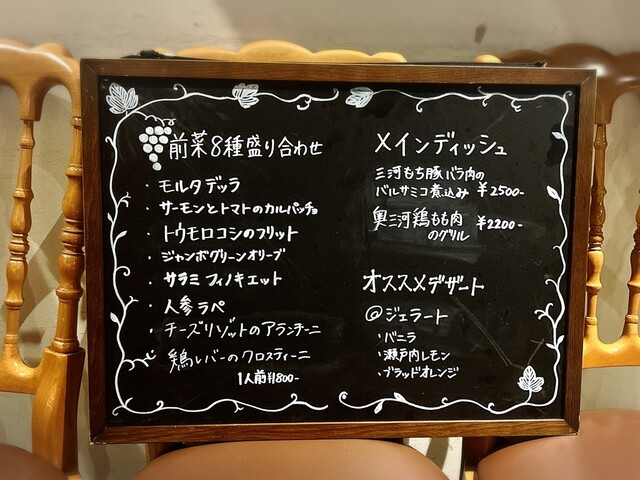 前菜8種盛り合わせ
・モルタデッラ
・サーモンとトマトのカルパッチョ
・トウモロコシのフリット
・ジャンボグリーンオリーブ
・サラミ フィノキエット
・人参ラペ
・チーズリゾットのアランチーニ
・鶏レバーのクロスティーニ
1人前¥800-
メインディッシュ
三河もち豚バラ肉の
バルサミコ煮込み ¥2500-
奥三河鶏もも肉
のグリル ¥2200-
オススメデザート
@ジェラート
・バニラ
・瀬戸内レモン
・ブラッドオレンジ